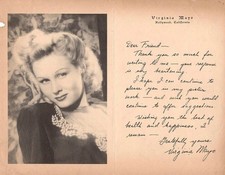 Virginia Mayo
Hollywood, California
Dear Friend —
Thank you so much for
writing to me — your response
is very flattering.
I hope I can continue to
please you in my picture
work — and wish you would
continue to offer suggestions.
Wishing you the best
of health and happiness, I
remain —
Gratefully yours,
Virginia Mayo